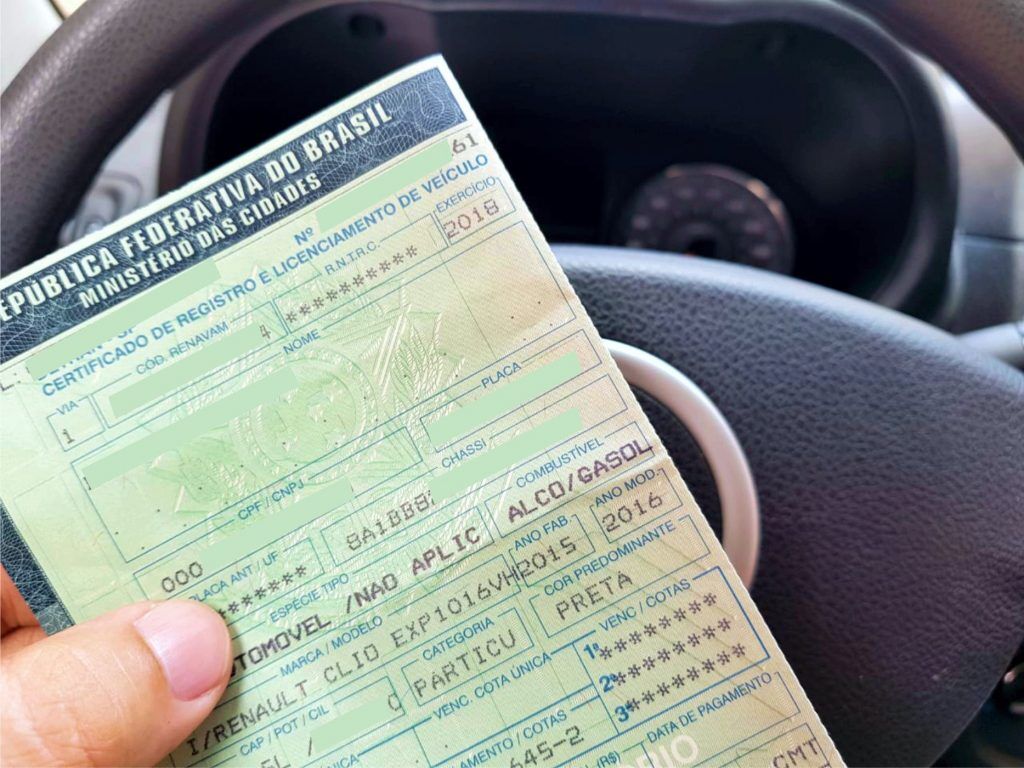 REPÚBLICA FEDERATIVA DO BRASIL
MINISTÉRIO DAS CIDADES
Nº 61
CERTIFICADO DE REGISTRO E LICENCIAMENTO DE VEÍCULO
VIA CÓD. RENAVAM R.N.T.R.C. EXERCÍCIO
1 4 ********** 2018
NOME
CPF / CNPJ PLACA
000
PLACA ANT / UF CHASSI
******* 8A1BB8
ESPÉCIE TIPO COMBUSTÍVEL
AUTOMOVEL /NAO APLIC ALCO/GASOL
MARCA / MODELO ANO FAB. ANO MOD.
I/RENAULT CLIO EXP1016VH 2015 2016
CAP / POT / CIL CATEGORIA COR PREDOMINANTE
PARTICU PRETA
VENC. COTA ÚNICA VENC / COTAS
1ª ********
2ª ********
3ª ********
AMENTO / COTAS
645-2
(R$) DATA DE PAGAMENTO
CMT